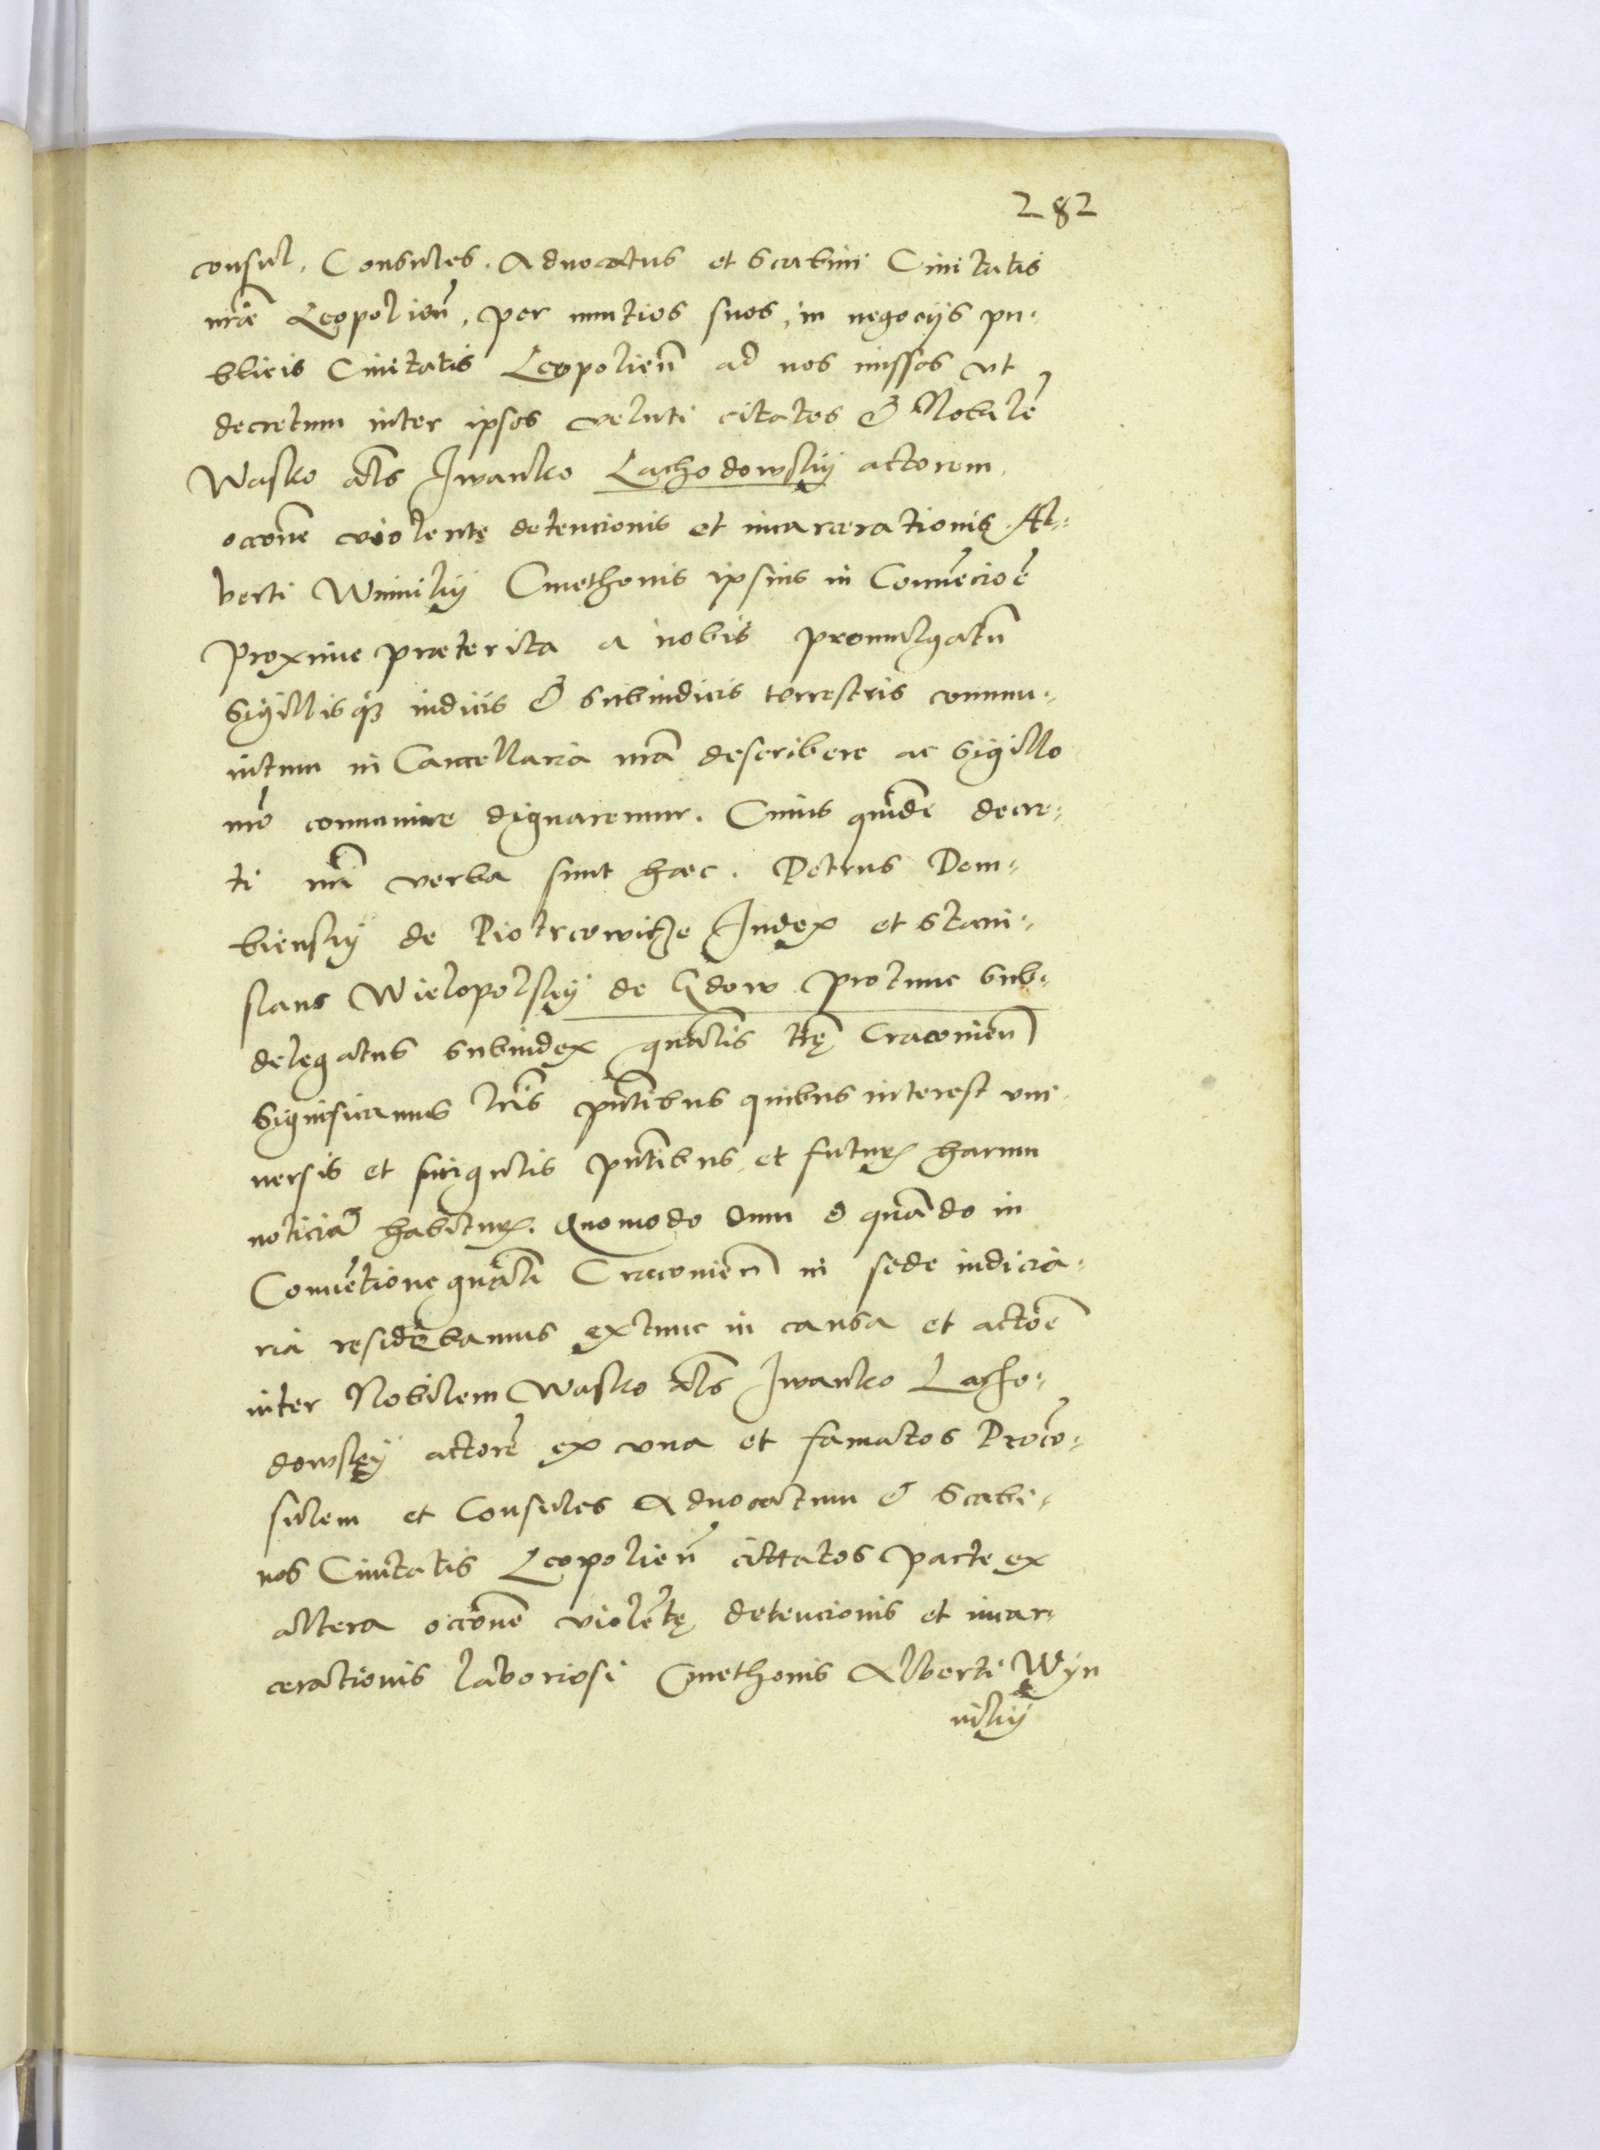 282
consul, Consules, Aduocatus et Scabini Ciuitatis
nr̃æ Leopolien̄, per nuntios suos, in negocijs pu-
blicis Ciuitatis Leopolien̄ ad nos missos, vt
decretum inter ipsos veluti citatos & Nobilē
Wasko al̃s Iwanko Lachodowskij actorem,
occōne violentę detencionis et incarcerationis Al-
berti Winnikij Cmethonis ipsius in Conuēcioē
proxime præterita a nobis promulgatū
Sigillisqz iudicis & Subiudicis terrestris commu-
nitum in Cancellaria nr̃a describere ac Sigillo
nr̃o communire dignaremur. Cuius quidē decre-
ti nr̃i verba sunt hæc. Petrus Dem-
biensky de Piotrcowicze Iudex et Stani-
slaus Wielopolskij de Gdow protunc Sub-
delegatus Subiudex gnãlis tr̃ę Cracouien̄
Significamus lr̃is pñtibus quibus interest vni-
uersis et singulis pñtibus et futurꝝ harum
noticiã habiturꝝ. Quomodo dum & quãdo in
Conuētione gnãli Cracouien̄ in sede iudicia-
ria residebamus extunc in causa et actōe
inter Nobilem Wasko al̃s Iwanko Lacho-
dowsky actorē ex vna et famatos Procō-
sulem et Consules Aduocatum & Scabi-
nos Ciuitatis Leopolien̄ cittatos parte ex
altera occōne violētę detencionis et incar-
cerationis laboriosi Cmethonis Alberti Wyn
nikij